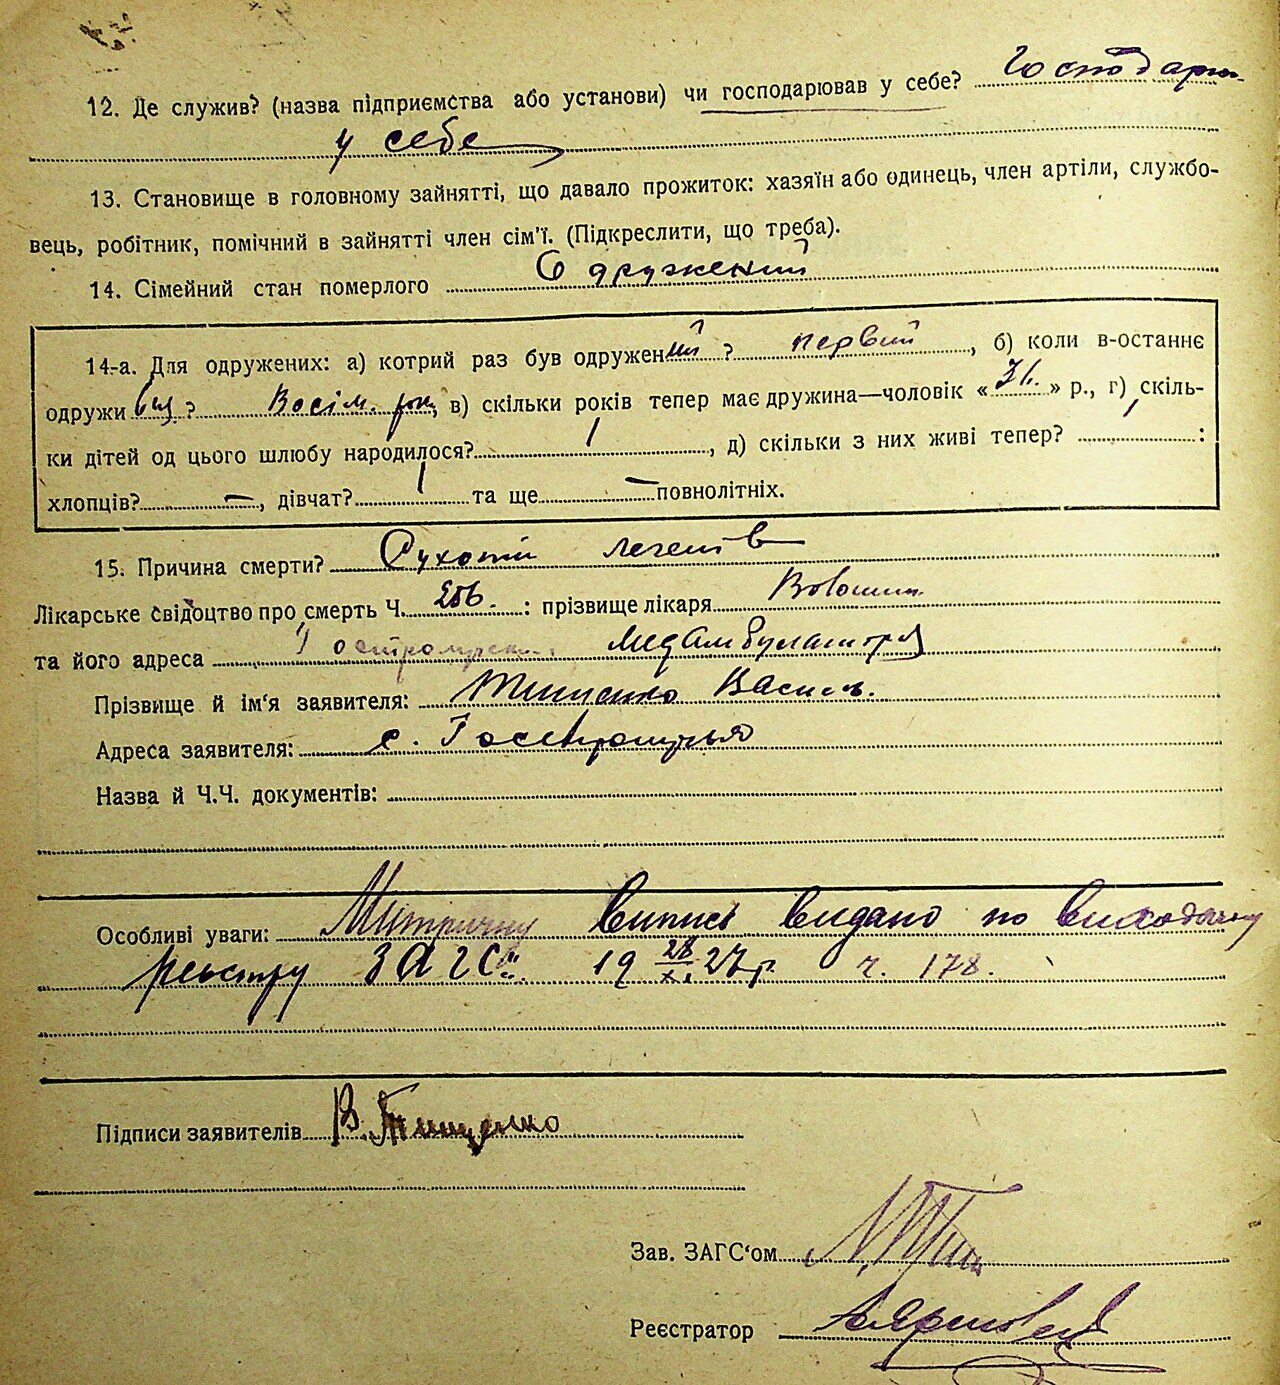 12. Де служив? (назва підприємства або установи) чи господарював у себе? Господарю
у себе
13. Становище в головному зайнятті, що давало прожиток: хазяїн або одинець, член артіли, службо-
вець, робітник, помічний в зайнятті член сім'ї. (Підкреслити, що треба).
14. Сімейний стан померлого Одружений
14-а. Для одружених: а) котрий раз був одружений? первий, б) коли в-останнє
одружився? Восім рок, в) скільки років тепер має дружина—чоловік «31.» р., г) скіль-
ки дітей од цього шлюбу народилося? 1, д) скільки з них живі тепер? 1:
хлопців? —, дівчат? 1 та ще — повнолітніх.
15. Причина смерти? Сухоти легенів
Лікарське свідоцтво про смерть Ч. 256. : прізвище лікаря Волошин
та його адреса Медамбулаторія
Прізвище й ім'я заявителя: Тищенко Василь.
Адреса заявителя: с.
Назва й Ч.Ч. документів:
Особливі уваги: Митричну Випись видано по виходячому
реєстру ЗАГСа 19 28/XI 27 р. ч. 178.
Підписи заявителів В. Тищенко
Зав. ЗАГС'ом
Реєстратор